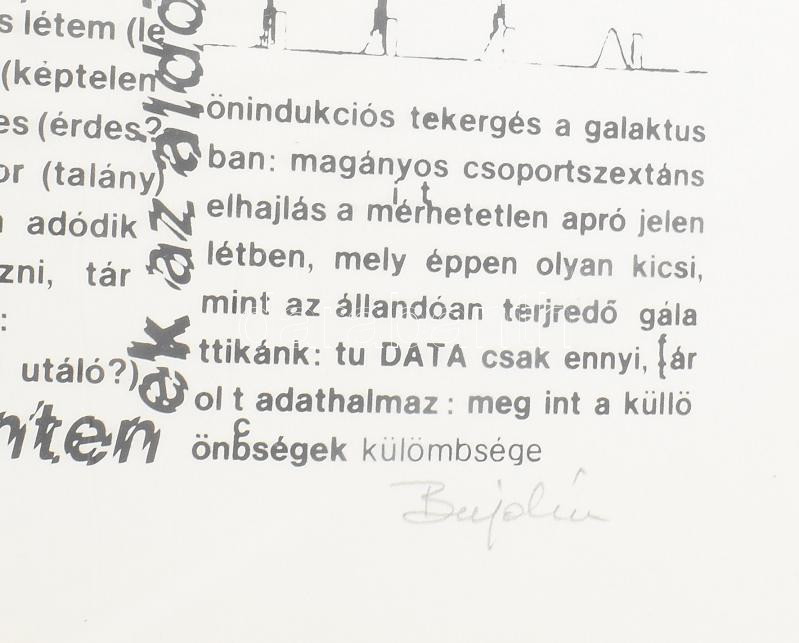 s létem (le
(képtelen
es (érdes?
or (talány)
adódik
zni, tár
:
utáló?)
nten
ek az aldo
önindukciós tekergés a galaktus
ban: magányos csoportszextáns
elhajlás a mérhetetlen apró jelen
létben, mely éppen olyan kicsi,
mint az állandóan terjredő gála
ttikánk: tu DATA csak ennyi, tár
ol t adathalmaz: meg int a küllö
önbségek külömbsége